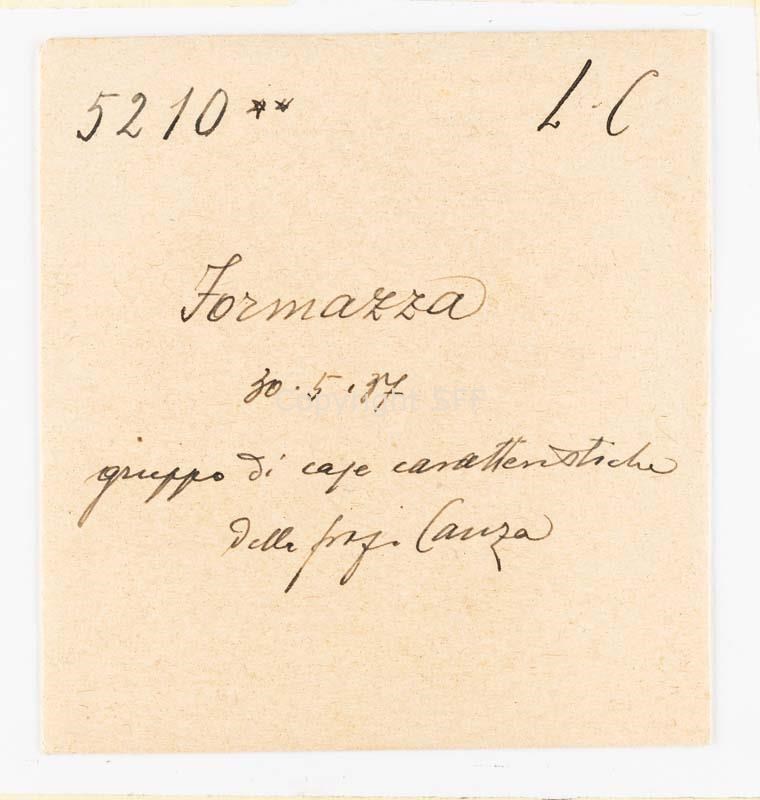 5210** L. C
Formazza
30.5.37
gruppo di case caratteristiche
della fraz. Canza